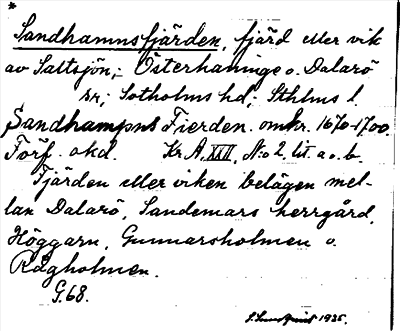 *
Sandhamnsfjärden, fjärd eller vik
av Saltsjön; Österhaninge o. Dalarö
sn; Sotholms hd; Sthlms l.
Sandhampns Fierden. omkr. 1670-1700.
Förf. okd. Kr. A, XXII, No 2, lit. a o. b.
Fjärden eller viken belägen mel-
lan Dalarö, Sandemars herrgård,
Höggarn, Gunnarsholmen o.
Rågholmen.
G.68.
1935.